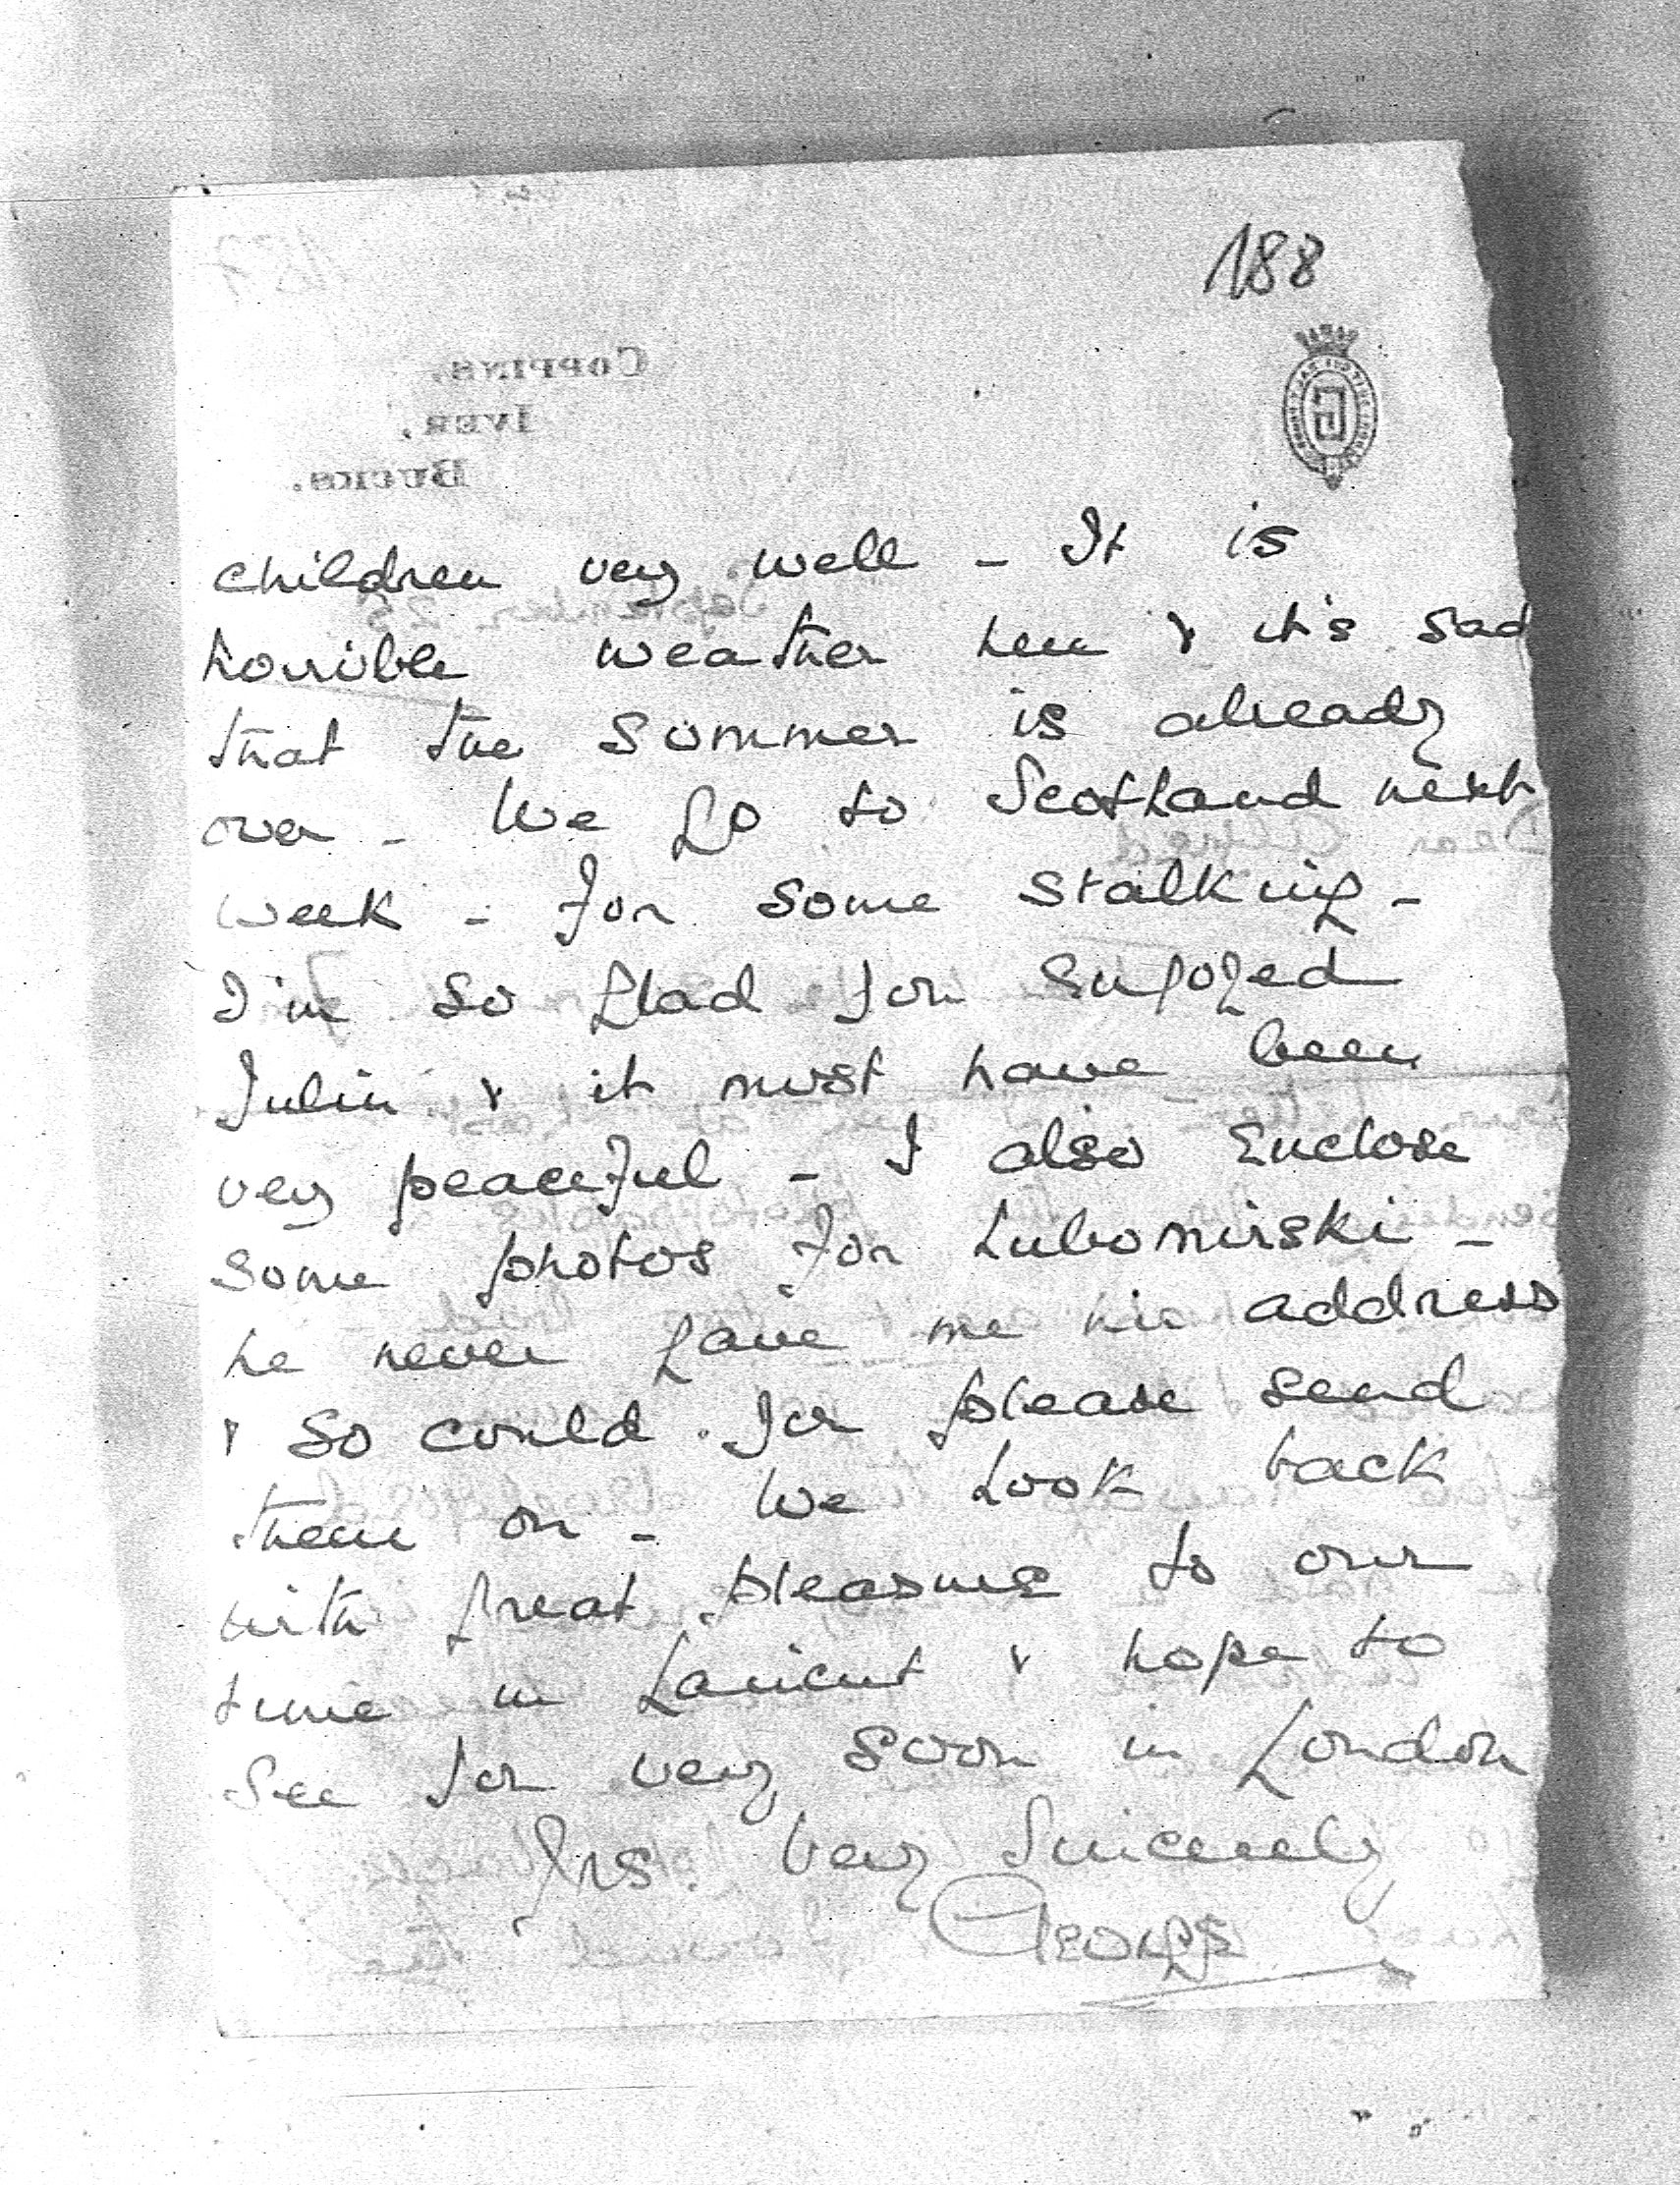 188
COPPINS,
IVER,
BUCKS.
children very well - It is
horrible weather here & it's sad
that the summer is already
over - We go to Scotland next
week - for some stalking -
I'm so glad you enjoyed
Julin & it must have been
very peaceful - I also enclose
some photos for Lubomirski -
he never gave me his address
& so could you please send
them on - We look back
with great pleasure to our
time in Lancut & hope to
see you very soon in London
Yrs. Very Sincerely
George